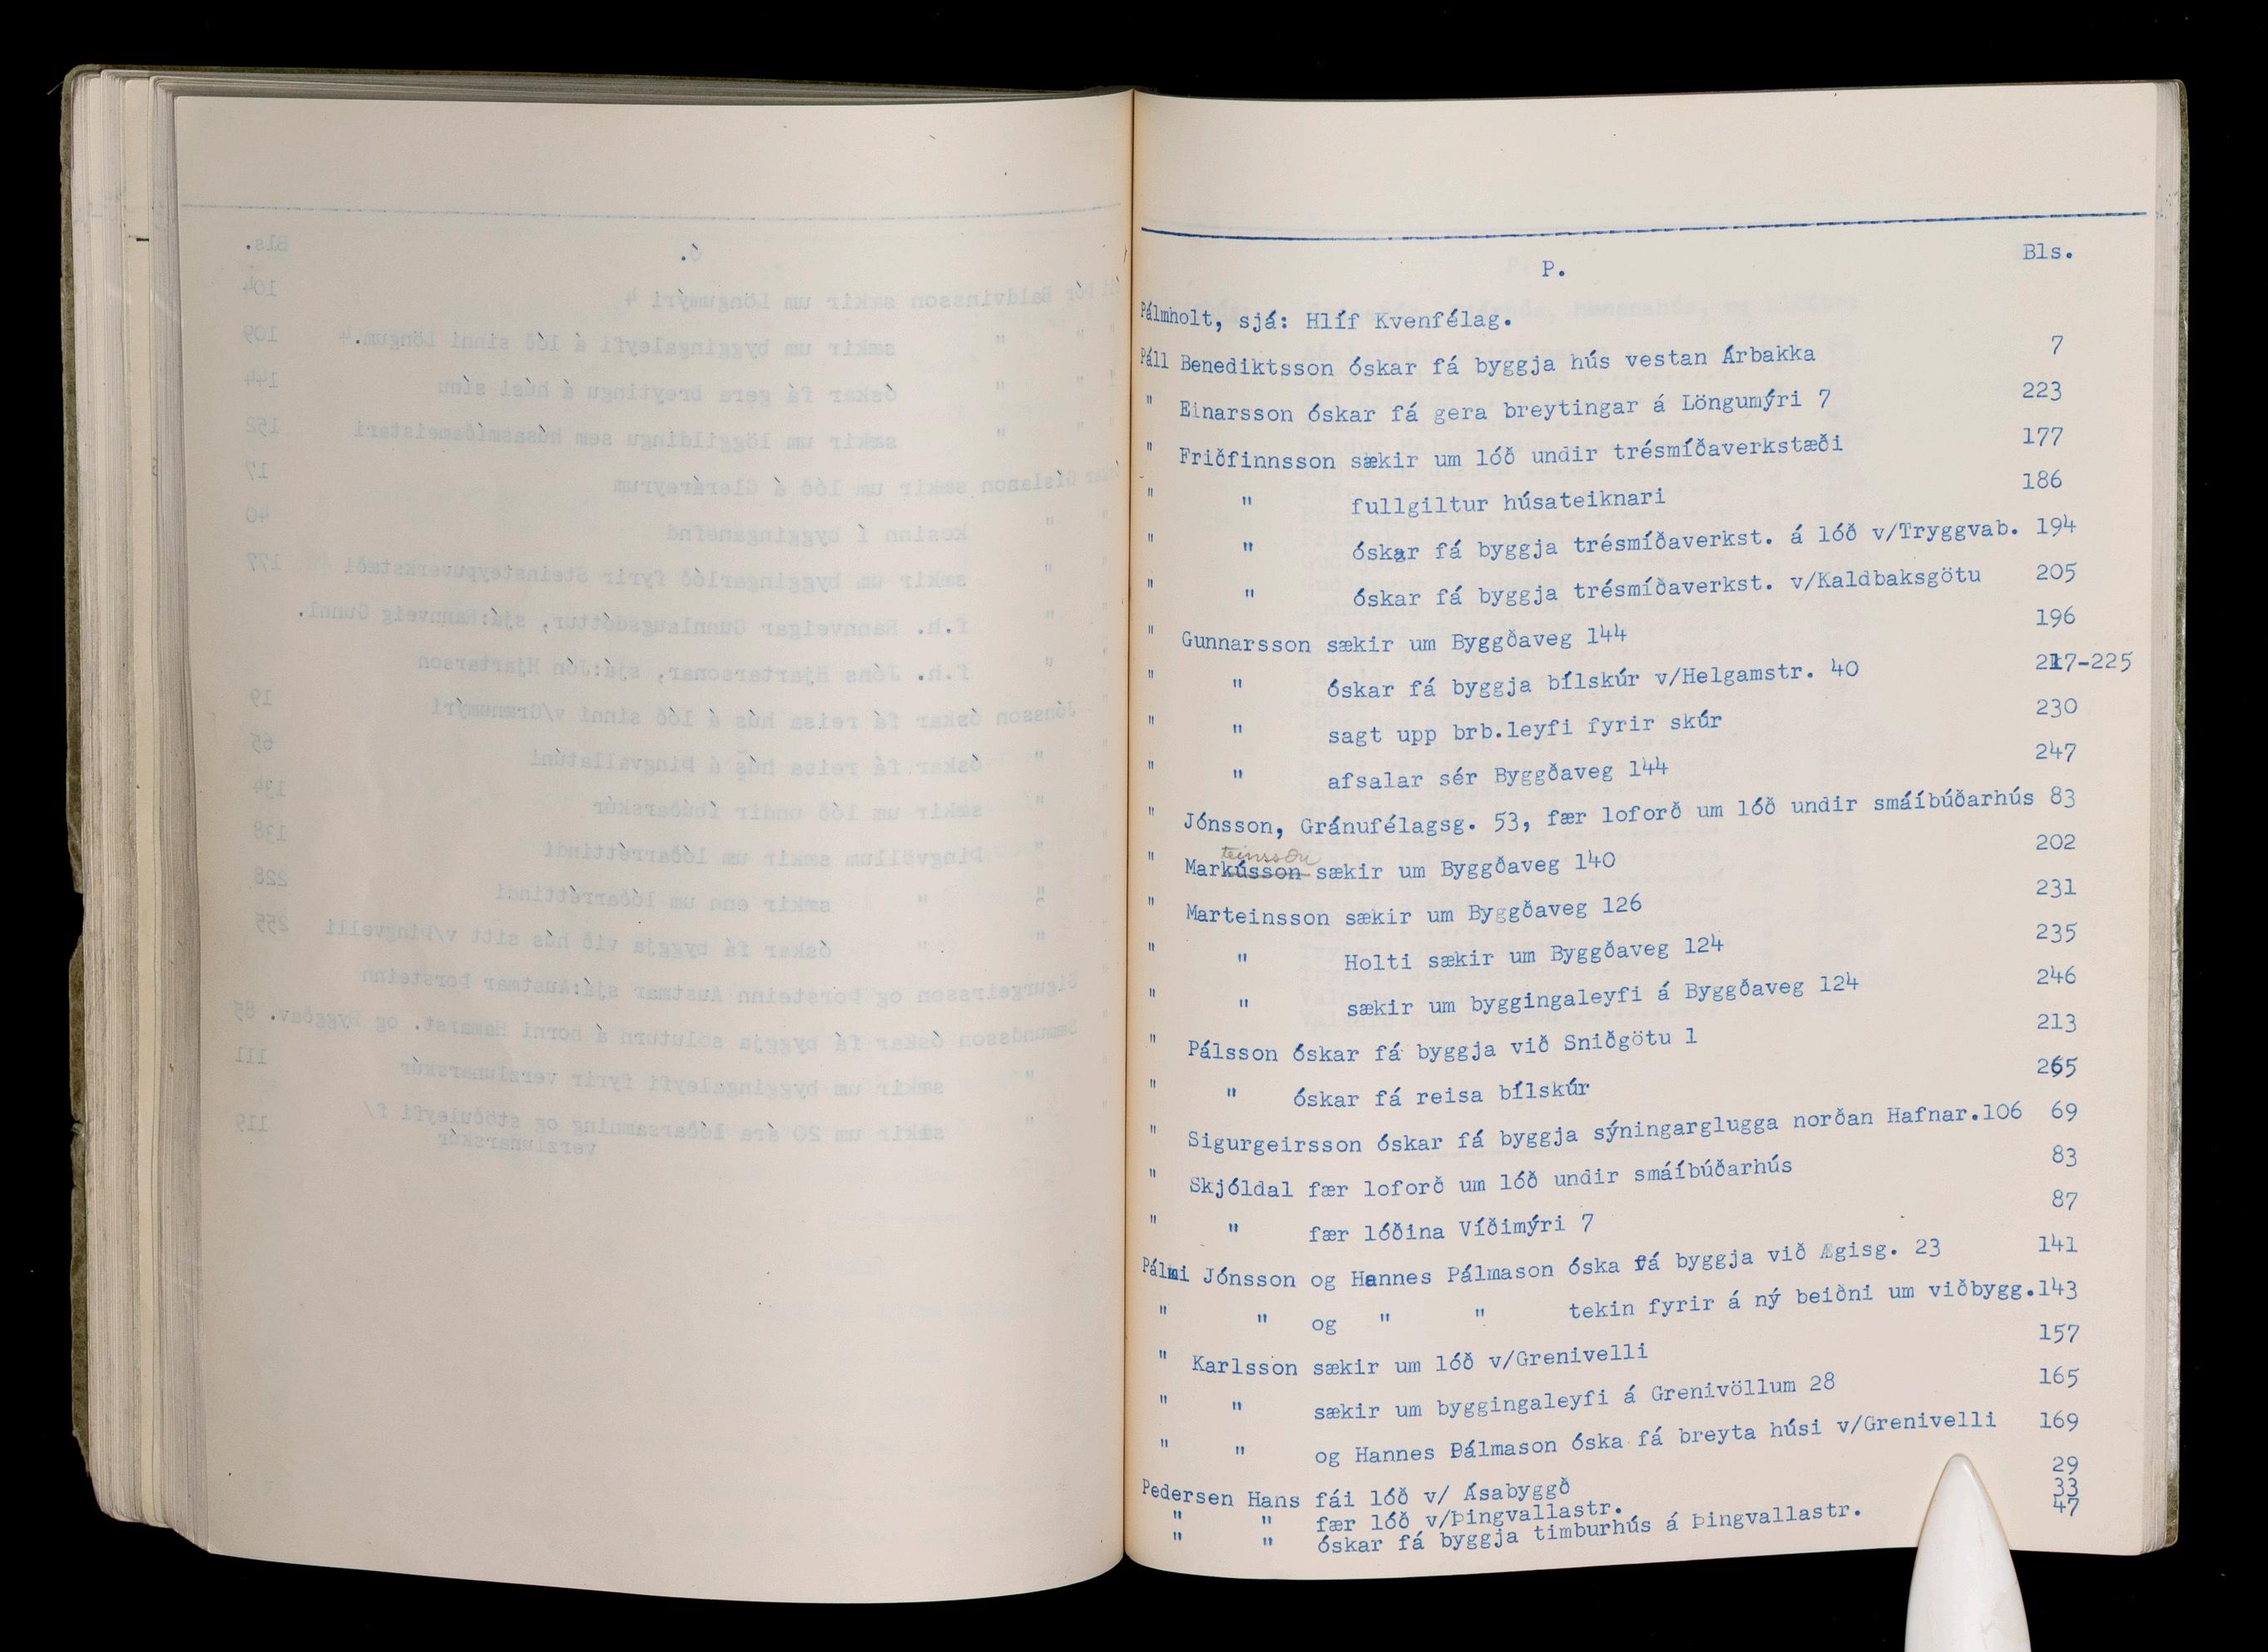 P.
Bls.
Pálmholt, sjá: Hlíf Kvenfélag.
Páll Benediktsson óskar fá byggja hús vestan Árbakka 7
" Einarsson óskar fá gera breytingar á Löngumýri 7 223
" Friðfinnsson sækir um lóð undir trésmíðaverkstæði 177
" " fullgiltur húsateiknari 186
" " óskar fá byggja trésmíðaverkst. á lóð v/Tryggvab. 194
" " óskar fá byggja trésmíðaverkst. v/Kaldbaksgötu 205
" Gunnarsson sækir um Byggðaveg 144 196
" " óskar fá byggja bílskúr v/Helgamstr. 40 217-225
" " sagt upp brb.leyfi fyrir skúr 230
" " afsalar sér Byggðaveg 144 247
" Jónsson, Gránufélagsg. 53, fær loforð um lóð undir smáíbúðarhús 83
teinsson
" Markússon sækir um Byggðaveg 140 202
" Marteinsson sækir um Byggðaveg 126 231
" " Holti sækir um Byggðaveg 124 235
" " sækir um byggingaleyfi á Byggðaveg 124 246
" Pálsson óskar fá byggja við Sniðgötu 1 213
" " óskar fá reisa bílskúr 265
" Sigurgeirsson óskar fá byggja sýningarglugga norðan Hafnar.106 69
" Skjóldal fær loforð um lóð undir smáíbúðarhús 83
" " fær lóðina Víðimýri 7 87
Pálmi Jónsson og Hannes Pálmason óska fá byggja við Ægisg. 23 141
" " og " " tekin fyrir á ný beiðni um viðbygg.143
" Karlsson sækir um lóð v/Grenivelli 157
" " sækir um byggingaleyfi á Grenivöllum 28 165
" " og Hannes Pálmason óska fá breyta húsi v/Grenivelli 169
Pedersen Hans fái lóð v/ Ásabyggð 29
" " fær lóð v/Þingvallastr. 33
" " óskar fá byggja timburhús á Þingvallastr. 47